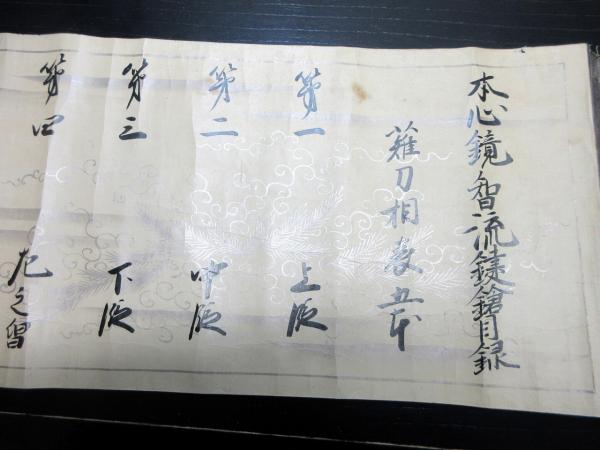 本心鏡智流鍵鎗目録
薙刀相 五本
第一 上段
第二 中段
第三 下段
第四 左之